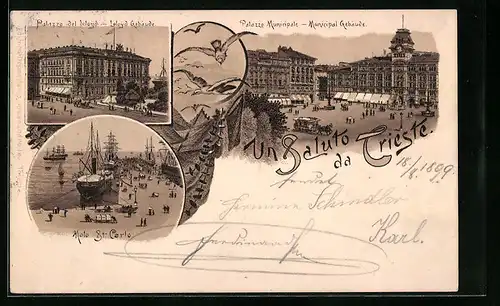 Palazzo del Lloyd — Lloyd Gebäude.
Palazzo Municipale — Municipal Gebäude.
Un Saluto
da Trieste.
18/8 1899.
Hermine Schindler
Karl.
Ferdinand
Molo St. Carlo